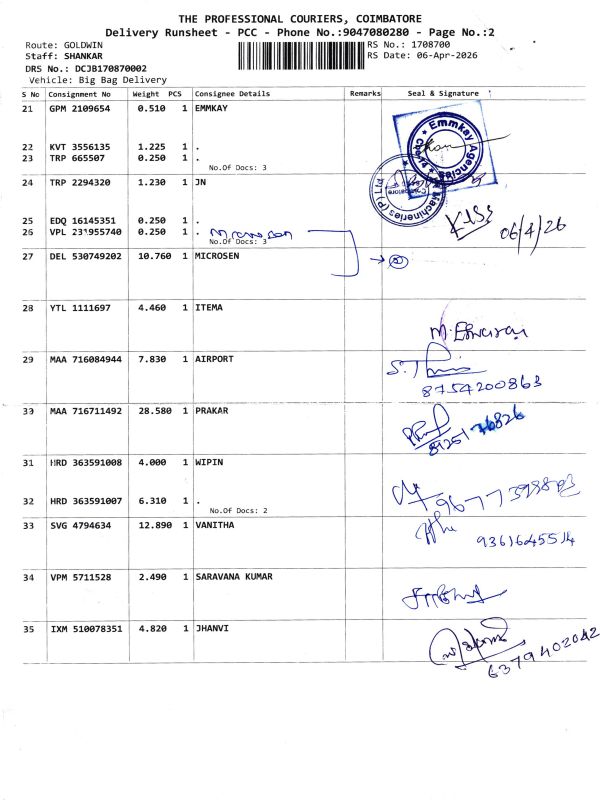 THE PROFESSIONAL COURIERS, COIMBATORE
Delivery Runsheet - PCC - Phone No.:9047080280 - Page No.:2
Route: GOLDWIN RS No.: 1708700
Staff: SHANKAR RS Date: 06-Apr-2026
DRS No.: DCJB170870002
Vehicle: Big Bag Delivery
S No Consignment No Weight PCS Consignee Details Remarks Seal & Signature
21 GPM 2109654 0.510 1 EMMKAY
Emmkay Agencies
22 KVT 3556135 1.225 1 .
23 TRP 665507 0.250 1 .
No.Of Docs: 3
24 TRP 2294320 1.230 1 JN
Machineries (P) Ltd
Coimbatore
25 EDQ 16145351 0.250 1 .
26 VPL 231955740 0.250 1 . Microsen
No.Of Docs: 3
06/4/26
27 DEL 530749202 10.760 1 MICROSEN
28 YTL 1111697 4.460 1 ITEMA
29 MAA 716084944 7.830 1 AIRPORT
8754200863
30 MAA 716711492 28.580 1 PRAKAR
31 HRD 363591008 4.000 1 WIPIN
32 HRD 363591007 6.310 1 .
No.Of Docs: 2
33 SVG 4794634 12.890 1 VANITHA
9361645514
34 VPM 5711528 2.490 1 SARAVANA KUMAR
35 IXM 510078351 4.820 1 JHANVI
6379402042